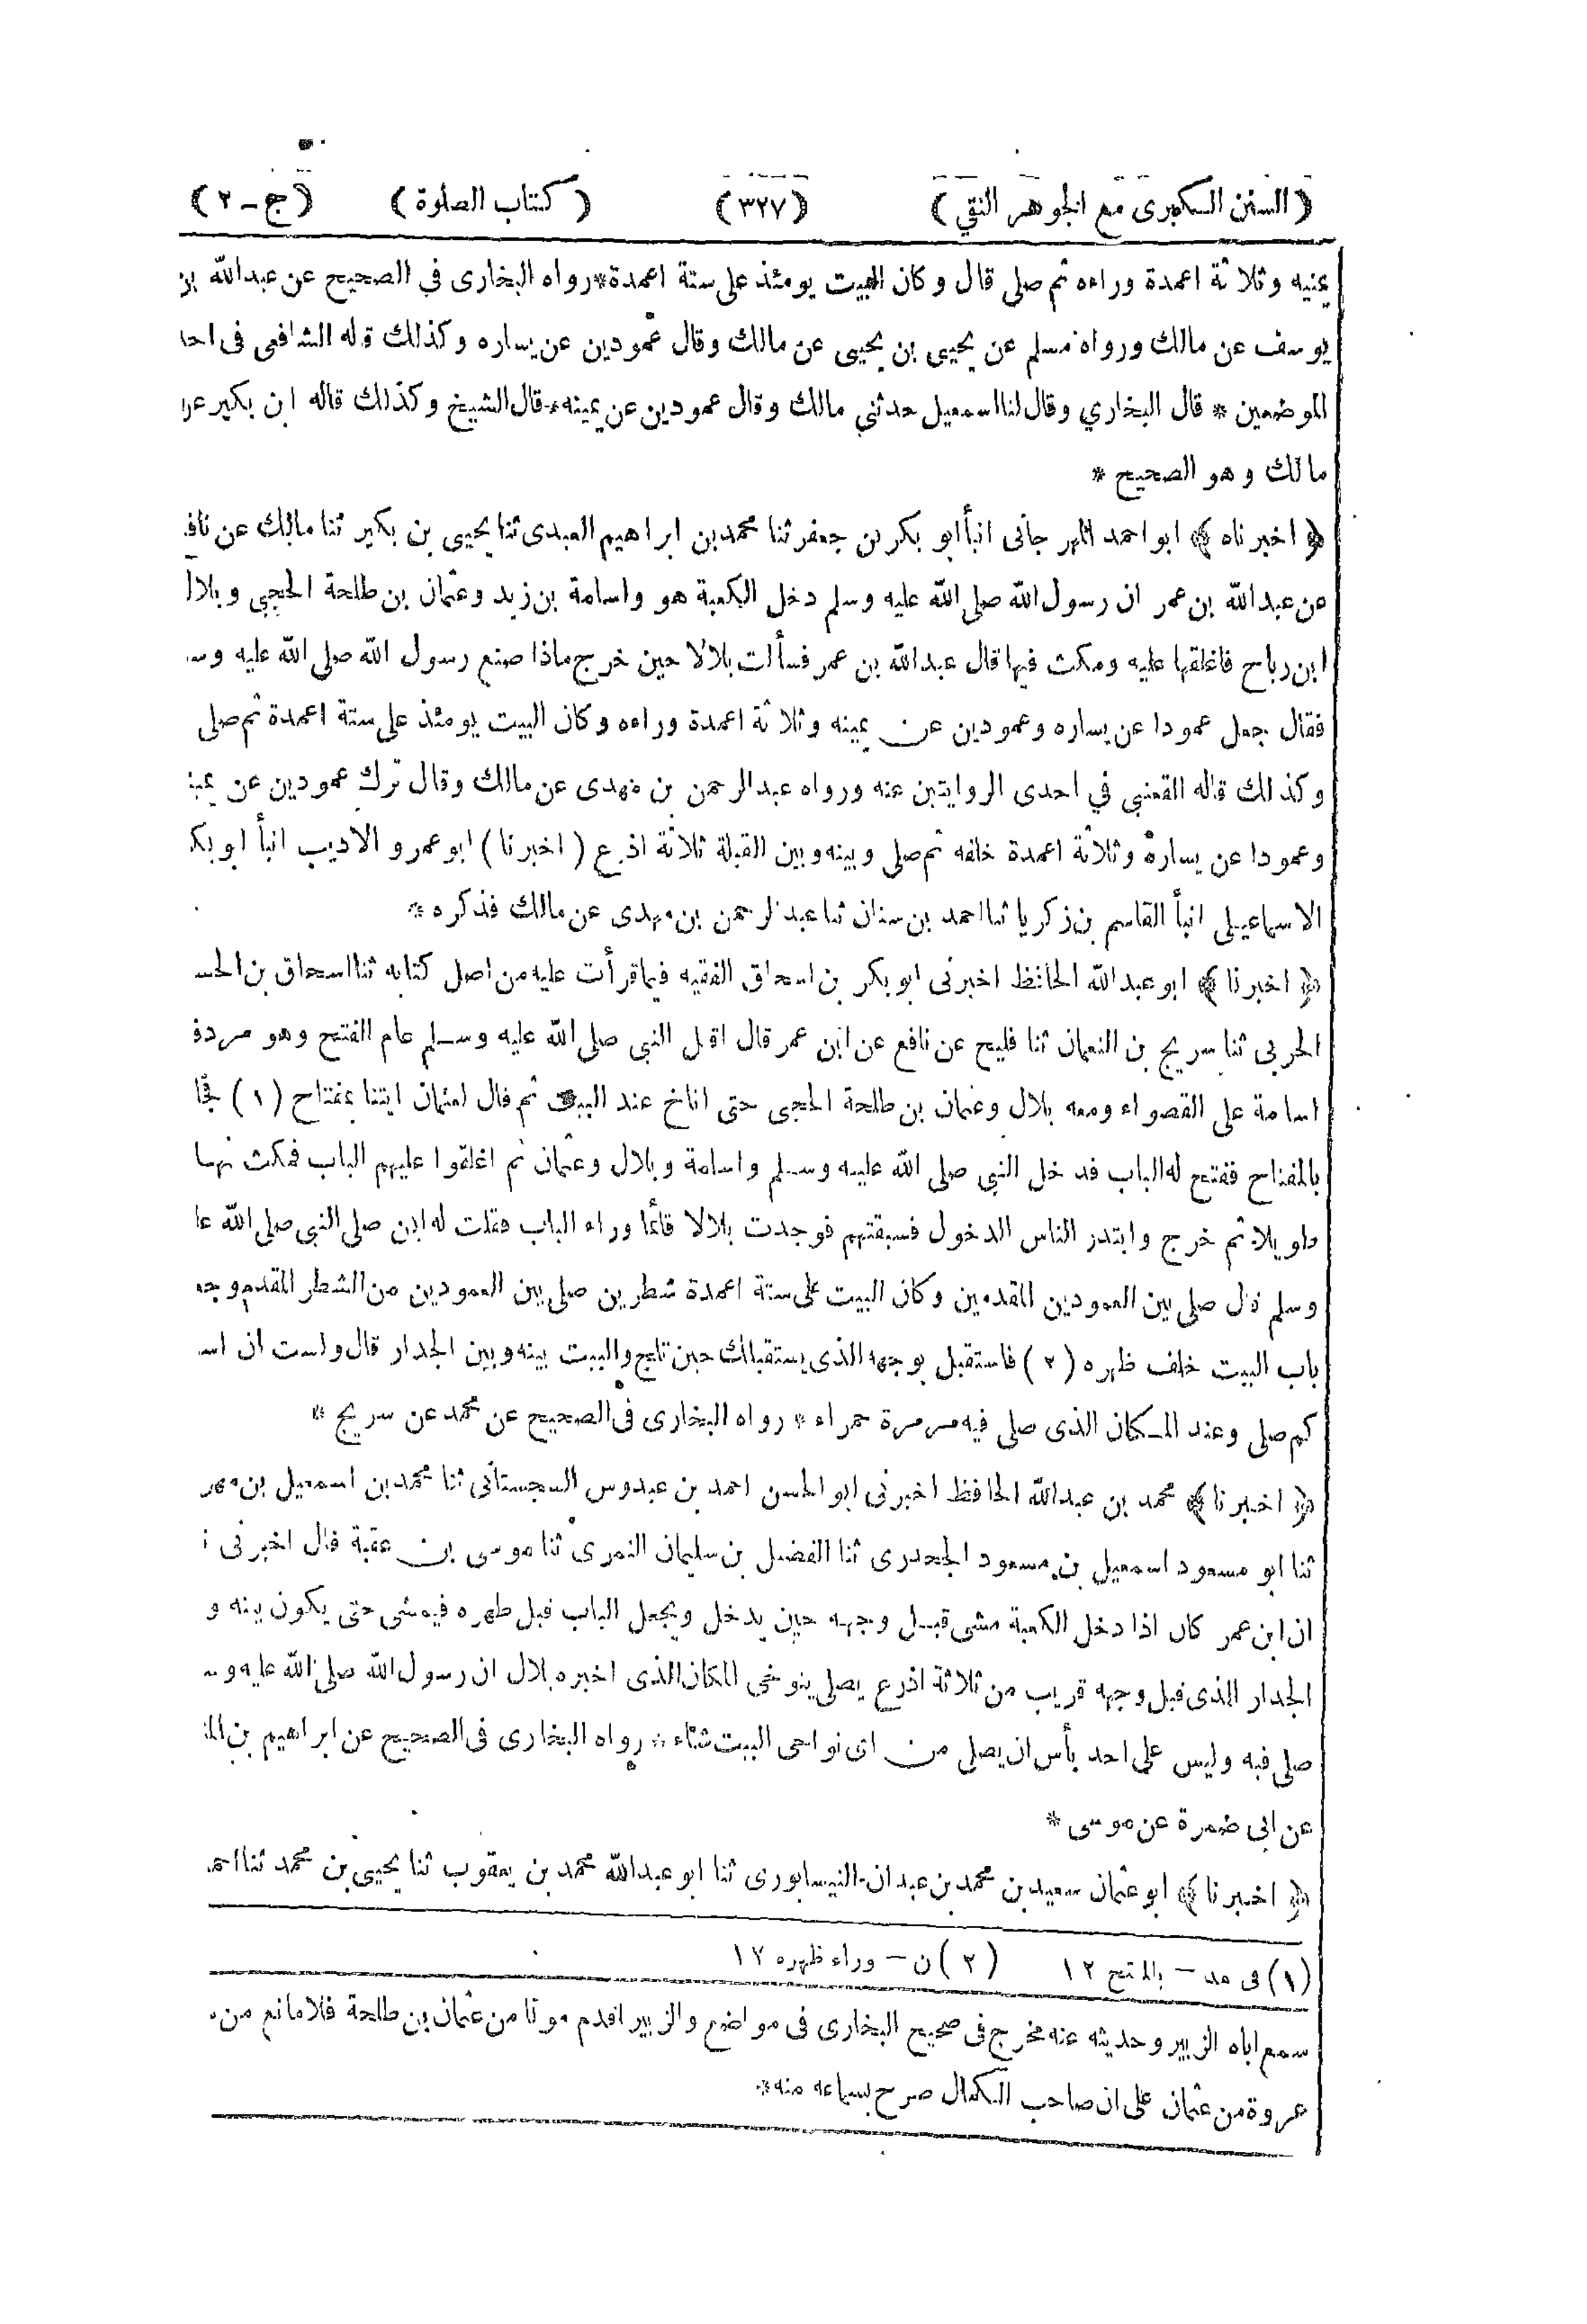 (السنن الكبرى مع الجوهر النقي) (٣٢٧) (كتاب الصلوة) (ج-٢)
يمينه وثلاثة اعمدة وراءه ثم صلى قال وكان البيت يومئذ على ستة اعمدة*رواه البخارى في الصحيح عن عبدالله بن
يوسف عن مالك ورواه مسلم عن يحيى بن يحيى عن مالك وقال عمودين عن يساره وكذلك قاله الشافعى فى احد
الموضعين * قال البخاري وقال لنا اسمعيل حدثني مالك وقال عمودين عن يمينه*قال الشيخ وكذلك قاله ابن بكير عن
مالك وهو الصحيح *
﴿ اخبرناه ﴾ ابو احمد المهرجانى انبأ ابو بكر بن جعفر ثنا محمد بن ابراهيم العبدى ثنا يحيى بن بكير ثنا مالك عن نافع
عن عبدالله بن عمر ان رسول الله صلى الله عليه وسلم دخل الكعبة هو واسامة بن زيد وعثمان بن طلحة الحجبي وبلال
ابن رباح فاغلقها عليه ومكث فيها قال عبدالله بن عمر فسألت بلالا حين خرج ماذا صنع رسول الله صلى الله عليه وسـ
فقال جعل عمودا عن يساره وعمودين عن يمينه وثلاثة اعمدة وراءه وكان البيت يومئذ على ستة اعمدة ثم صلى
وكذلك قاله القعنبي في احدى الروايتين عنه ورواه عبدالرحمن بن مهدى عن مالك وقال ترك عمودين عن يمينـ
وعمودا عن يساره وثلاثة اعمدة خلفه ثم صلى وبينه وبين القبلة ثلاثة اذرع (اخبرنا) ابو عمرو الاديب انبأ ابو بكر
الاسماعيلى انبأ القاسم بن زكريا ثنا احمد بن سنان ثنا عبدالرحمن بن مهدى عن مالك فذكره *
﴿ اخبرنا ﴾ ابو عبدالله الحافظ اخبرنى ابو بكر بن اسحاق الفقيه فيما قرأت عليه من اصل كتابه ثنا اسحاق بن الحسـ
الحربى ثنا سريج بن النعمان ثنا فليح عن نافع عن ابن عمر قال اقبل النبى صلى الله عليه وسلم عام الفتح وهو مردف
اسامة على القصواء ومعه بلال وعثمان بن طلحة الحجبى حتى اناخ عند البيت ثم قال لعثمان ايتنا بمفتاح (١) فجا
بالمفتاح ففتح له الباب فدخل النبى صلى الله عليه وسلم واسامة وبلال وعثمان ثم اغلقوا عليهم الباب فمكث نهـا
طويلا ثم خرج وابتدر الناس الدخول فسبقتهم فوجدت بلالا قائما وراء الباب فقلت له اين صلى النبى صلى الله عليـ
وسلم قال صلى بين العمودين المقدمين وكان البيت على ستة اعمدة شطرين صلى بين العمودين من الشطر المقدم وجعـ
باب البيت خلف ظهره (٢) فاستقبل بوجهه الذى يستقبلك حين تلج والبيت بينه وبين الجدار قال ولست ان اسـ
كم صلى وعند المكان الذى صلى فيه مرمرة حمراء * رواه البخارى فى الصحيح عن محمد عن سريج *
﴿ اخبرنا ﴾ محمد بن عبدالله الحافظ اخبرنى ابو الحسن احمد بن عبدوس السجستانى ثنا محمد بن اسمعيل بن مهر
ثنا ابو مسعود اسمعيل بن مسعود الجحدرى ثنا الفضيل بن سليمان النمرى ثنا موسى بن عقبة قال اخبرنى
ان ابن عمر كان اذا دخل الكعبة مشى قبل وجهه حين يدخل ويجعل الباب قبل ظهره فيمشى حتى يكون بينه و
الجدار الذى قبل وجهه قريب من ثلاثة اذرع يصلى يتوخى المكان الذى اخبره بلال ان رسول الله صلى الله عليه وسـ
صلى فيه وليس على احد بأس ان يصلى من اى نواحى البيت شاء * رواه البخارى فى الصحيح عن ابراهيم بن المنـ
عن ابى ضمرة عن موسى *
﴿ اخبرنا ﴾ ابو عثمان سعيد بن محمد بن عبدان النيسابورى ثنا ابو عبدالله محمد بن يعقوب ثنا يحيى بن محمد ثنا احمـ
(١) فى مد - بالمفتح ١٢ (٢) ن - وراء ظهره ١٢
سمع اباه الزبير وحديثه عنه مخرج فى صحيح البخارى فى مواضع والزبير اقدم موتا من عثمان بن طلحة فلا مانع من
عروة من عثمان على ان صاحب الكمال صرح بسماعه منه*